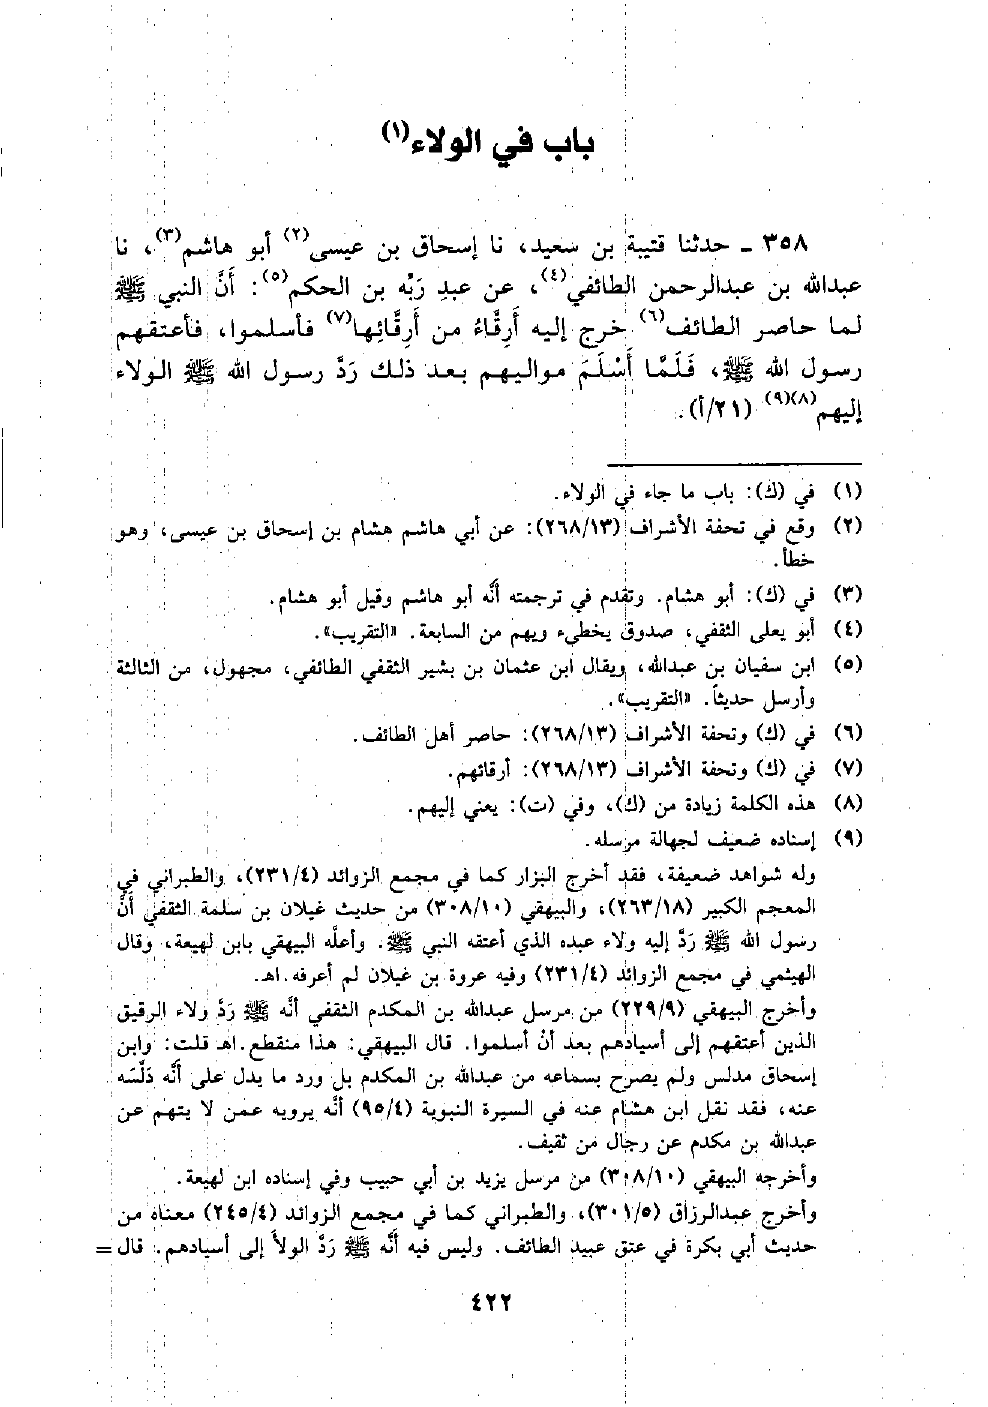 باب في الولاء(١)
٣٥٨ - حدثنا قتيبة بن سعيد، نا إسحاق بن عيسى(٢) أبو هاشم(٣)، نا
عبدالله بن عبدالرحمن الطائفي(٤)، عن عبدِ رَبِّه بن الحكم(٥): أَنَّ النبي ﷺ
لما حاصر الطائف(٦) خرج إليه أَرِقَّاءُ من أَرِقَّائِها(٧) فأسلموا، فأعتقهم
رسول الله ﷺ، فَلَمَّا أَسْلَمَ مواليهم بعد ذلك رَدَّ رسول الله ﷺ الولاء
إليهم(٨)(٩) (٢١/أ).
(١) في (ك): باب ما جاء في الولاء.
(٢) وقع في تحفة الأشراف (٢٦٨/١٣): عن أبي هاشم هشام بن إسحاق بن عيسى، وهو
خطأ.
(٣) في (ك): أبو هشام. وتقدم في ترجمته أنَّه أبو هاشم وقيل أبو هشام.
(٤) أبو يعلى الثقفي، صدوق يخطىء ويهم من السابعة. «التقريب».
(٥) ابن سفيان بن عبدالله، ويقال ابن عثمان بن بشير الثقفي الطائفي، مجهول، من الثالثة
وأرسل حديثاً. «التقريب».
(٦) في (ك) وتحفة الأشراف (٢٦٨/١٣): حاصر أهل الطائف.
(٧) في (ك) وتحفة الأشراف (٢٦٨/١٣): أرقائهم.
(٨) هذه الكلمة زيادة من (ك)، وفي (ت): يعني إليهم.
(٩) إسناده ضعيف لجهالة مرسله.
وله شواهد ضعيفة، فقد أخرج البزار كما في مجمع الزوائد (٢٣١/٤)، والطبراني في
المعجم الكبير (٢٦٣/١٨)، والبيهقي (٣٠٨/١٠) من حديث غيلان بن سلمة الثقفي أنَّ
رسول الله ﷺ رَدَّ إليه ولاء عبده الذي أعتقه النبي ﷺ. وأعلَّه البيهقي بابن لهيعة، وقال
الهيثمي في مجمع الزوائد (٢٣١/٤) وفيه عروة بن غيلان لم أعرفه.اهـ.
وأخرج البيهقي (٢٢٩/٩) من مرسل عبدالله بن المكدم الثقفي أنَّه ﷺ رَدَّ ولاء الرقيق
الذين أعتقهم إلى أسيادهم بعد أنْ أسلموا. قال البيهقي: هذا منقطع.اهـ قلت: وابن
إسحاق مدلس ولم يصرح بسماعه من عبدالله بن المكدم بل ورد ما يدل على أنَّه دَلَّسَه
عنه، فقد نقل ابن هشام عنه في السيرة النبوية (٩٥/٤) أنَّه يرويه عمن لا يتهم عن
عبدالله بن مكدم عن رجال من ثقيف.
وأخرجه البيهقي (٣٠٨/١٠) من مرسل يزيد بن أبي حبيب وفي إسناده ابن لهيعة.
وأخرج عبدالرزاق (٣٠١/٥)، والطبراني كما في مجمع الزوائد (٢٤٥/٤) معناه من
حديث أبي بكرة في عتق عبيد الطائف. وليس فيه أنَّه ﷺ رَدَّ الولأ إلى أسيادهم. قال =
٤٢٢